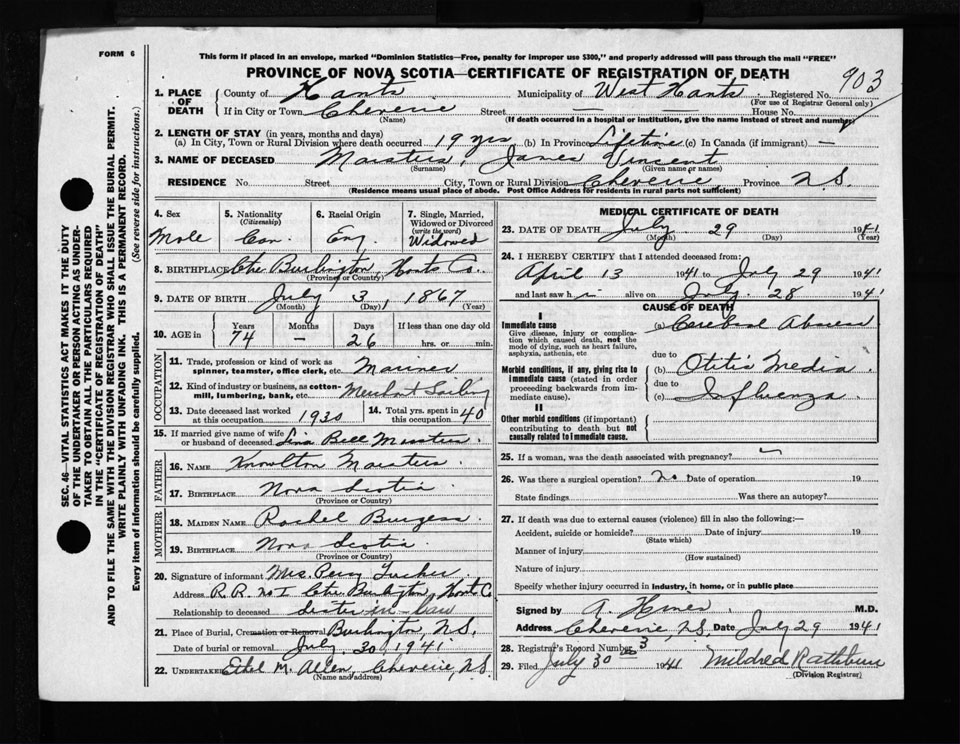 FORM 6
This form if placed in an envelope, marked "Dominion Statistics—Free, penalty for improper use $300," and properly addressed will pass through the mail "FREE"
PROVINCE OF NOVA SCOTIA—CERTIFICATE OF REGISTRATION OF DEATH
903
1. PLACE OF DEATH
County of Hants Municipality of West Hants Registered No.
(For use of Registrar General only)
If in City or Town Cheverie Street — House No.
(Name) (If death occurred in a hospital or institution, give the name instead of street and number)
2. LENGTH OF STAY (in years, months and days)
(a) In City, Town or Rural Division where death occurred 19 yrs (b) In Province Lifetime (c) In Canada (if immigrant) —
3. NAME OF DECEASED Marsters, James Vincent
(Surname) (Given name or names)
RESIDENCE No. Street City, Town or Rural Division Cheverie, Province N.S.
(Residence means usual place of abode. Post Office Address for residents in rural parts not sufficient)
4. Sex
Male
5. Nationality (Citizenship)
Can.
6. Racial Origin
Eng.
7. Single, Married, Widowed or Divorced (write the word)
Widowed
8. BIRTHPLACE Ctre Burlington, Hants Co.
(Province or Country)
9. DATE OF BIRTH July 3, 1867
(Month) (Day) (Year)
10. AGE in Years Months Days If less than one day old
74 — 26 hrs. or min.
OCCUPATION
11. Trade, profession or kind of work as spinner, teamster, office clerk, etc. Mariner
12. Kind of industry or business, as cotton-mill, lumbering, bank, etc. Merchant Sailing
13. Date deceased last worked at this occupation 1930
14. Total yrs. spent in this occupation 40
15. If married give name of wife or husband of deceased Bell Marsters.
FATHER
16. NAME Knowlton Marsters
17. BIRTHPLACE Nova Scotia
(Province or Country)
MOTHER
18. MAIDEN NAME Rachel Burgess
19. BIRTHPLACE Nova Scotia
(Province or Country)
20. Signature of informant Mrs Percy Tucker.
Address R.R. No I Ctre Burlington, Hants Co
Relationship to deceased sister-in-law
21. Place of Burial, Cremation or Removal Burlington, N.S.
Date of burial or removal July 30, 1941
22. UNDERTAKER Ethel M. Allen, Cheverie, N.S.
(Name and address)
MEDICAL CERTIFICATE OF DEATH
23. DATE OF DEATH July 29 1941
(Month) (Day) (Year)
24. I HEREBY CERTIFY that I attended deceased from:
April 13 1941 to July 29 1941
and last saw him alive on July 28 1941
CAUSE OF DEATH
I
Immediate cause (a) Cerebral Abscess
Give disease, injury or complication which caused death, not the mode of dying, such as heart failure, asphyxia, asthenia, etc
due to
Morbid conditions, if any, giving rise to immediate cause (stated in order proceeding backwards from immediate cause).
(b) Otitis Media
due to
(c) Influenza
II
Other morbid conditions (if important) contributing to death but not causally related to immediate cause.
25. If a woman, was the death associated with pregnancy?
26. Was there a surgical operation? No Date of operation 19
State findings Was there an autopsy?
27. If death was due to external causes (violence) fill in also the following:—
Accident, suicide or homicide? Date of injury 19
(State which)
Manner of injury
(How sustained)
Nature of injury
Specify whether injury occurred in industry, in home, or in public place
Signed by M.D.
Address Cheverie, N.S. Date July 29 1941
28. Registrar's Record Number 3
29. Filed July 30 1941 Mildred Rathburn
(Division Registrar)
SEC. 46—VITAL STATISTICS ACT MAKES IT THE DUTY
OF THE UNDERTAKER OR PERSON ACTING AS UNDER-
TAKER TO OBTAIN ALL THE PARTICULARS REQUIRED
IN THE "CERTIFICATE OF REGISTRATION OF DEATH"
AND TO FILE THE SAME WITH THE DIVISION REGISTRAR WHO SHALL ISSUE THE BURIAL PERMIT.
WRITE PLAINLY WITH UNFADING INK. THIS IS A PERMANENT RECORD.
Every item of information should be carefully supplied. (See reverse side for instructions.)